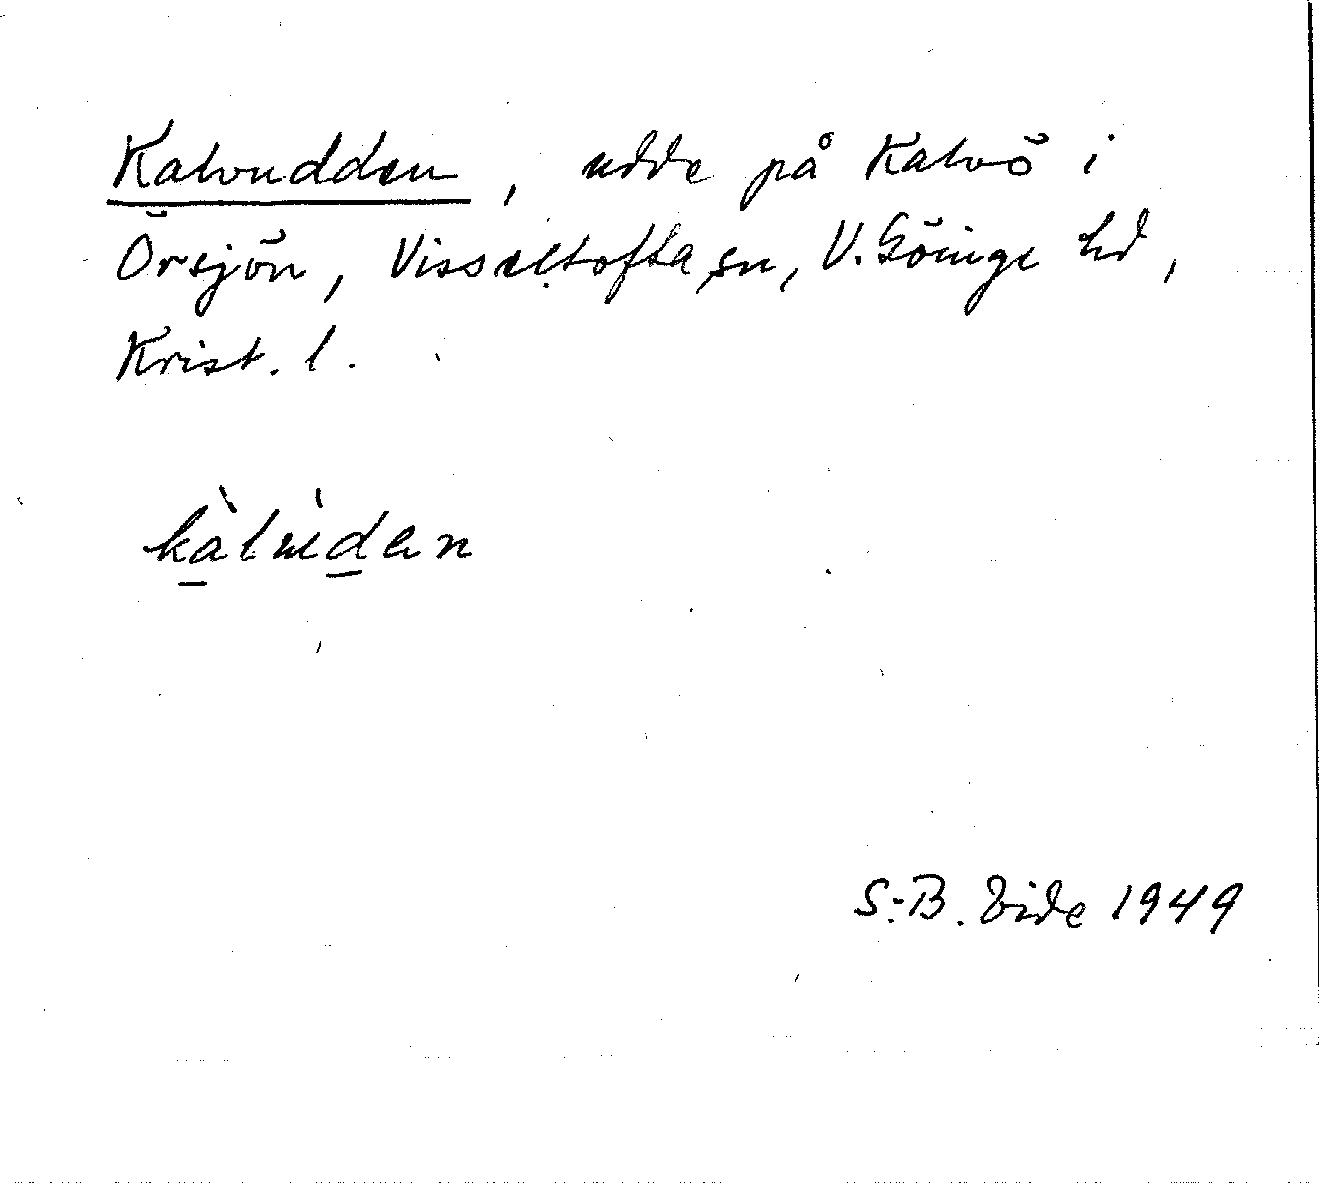 Kalvudden, udde på Kalvö i
Örsjön, Visseltofta sn, V. Göinge hd,
Krist. l.
kàlùden
S.-B. Vide 1949